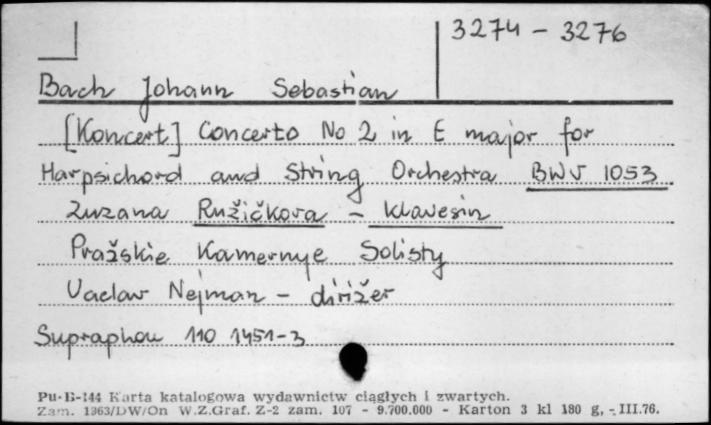 3274 - 3276
Bach Johann Sebastian
[Koncert] Concerto No 2 in E major for
Harpsichord and String Orchestra BWV 1053
Zuzana Ružičkova - klavesin
Pražskie Kamernye Solisty
Vaclav Nejman - dirižer
Supraphon 110 1451-3
Pu-B-144 Karta katalogowa wydawnictw ciągłych i zwartych.
Zam. 1363/DW/On W.Z.Graf. Z-2 zam. 107 - 9.700.000 - Karton 3 kl 180 g, - III.76.